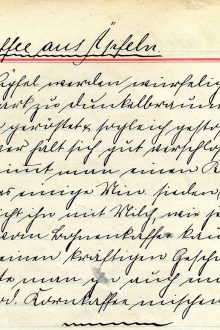 ffee aus Äpfeln.
Äpfel werden würfelig
ark zu dunkelbraun
geröstet & sogleich gesto
er hält sich gut verschlo
nimmt man einen K
es einige Min. sieden,
cht ihn mit Milch, wie je
vom Bohnenkaffee kei
einen kräftigen Gesch
te man ihn auch mi
od. Kornkaffee mischen